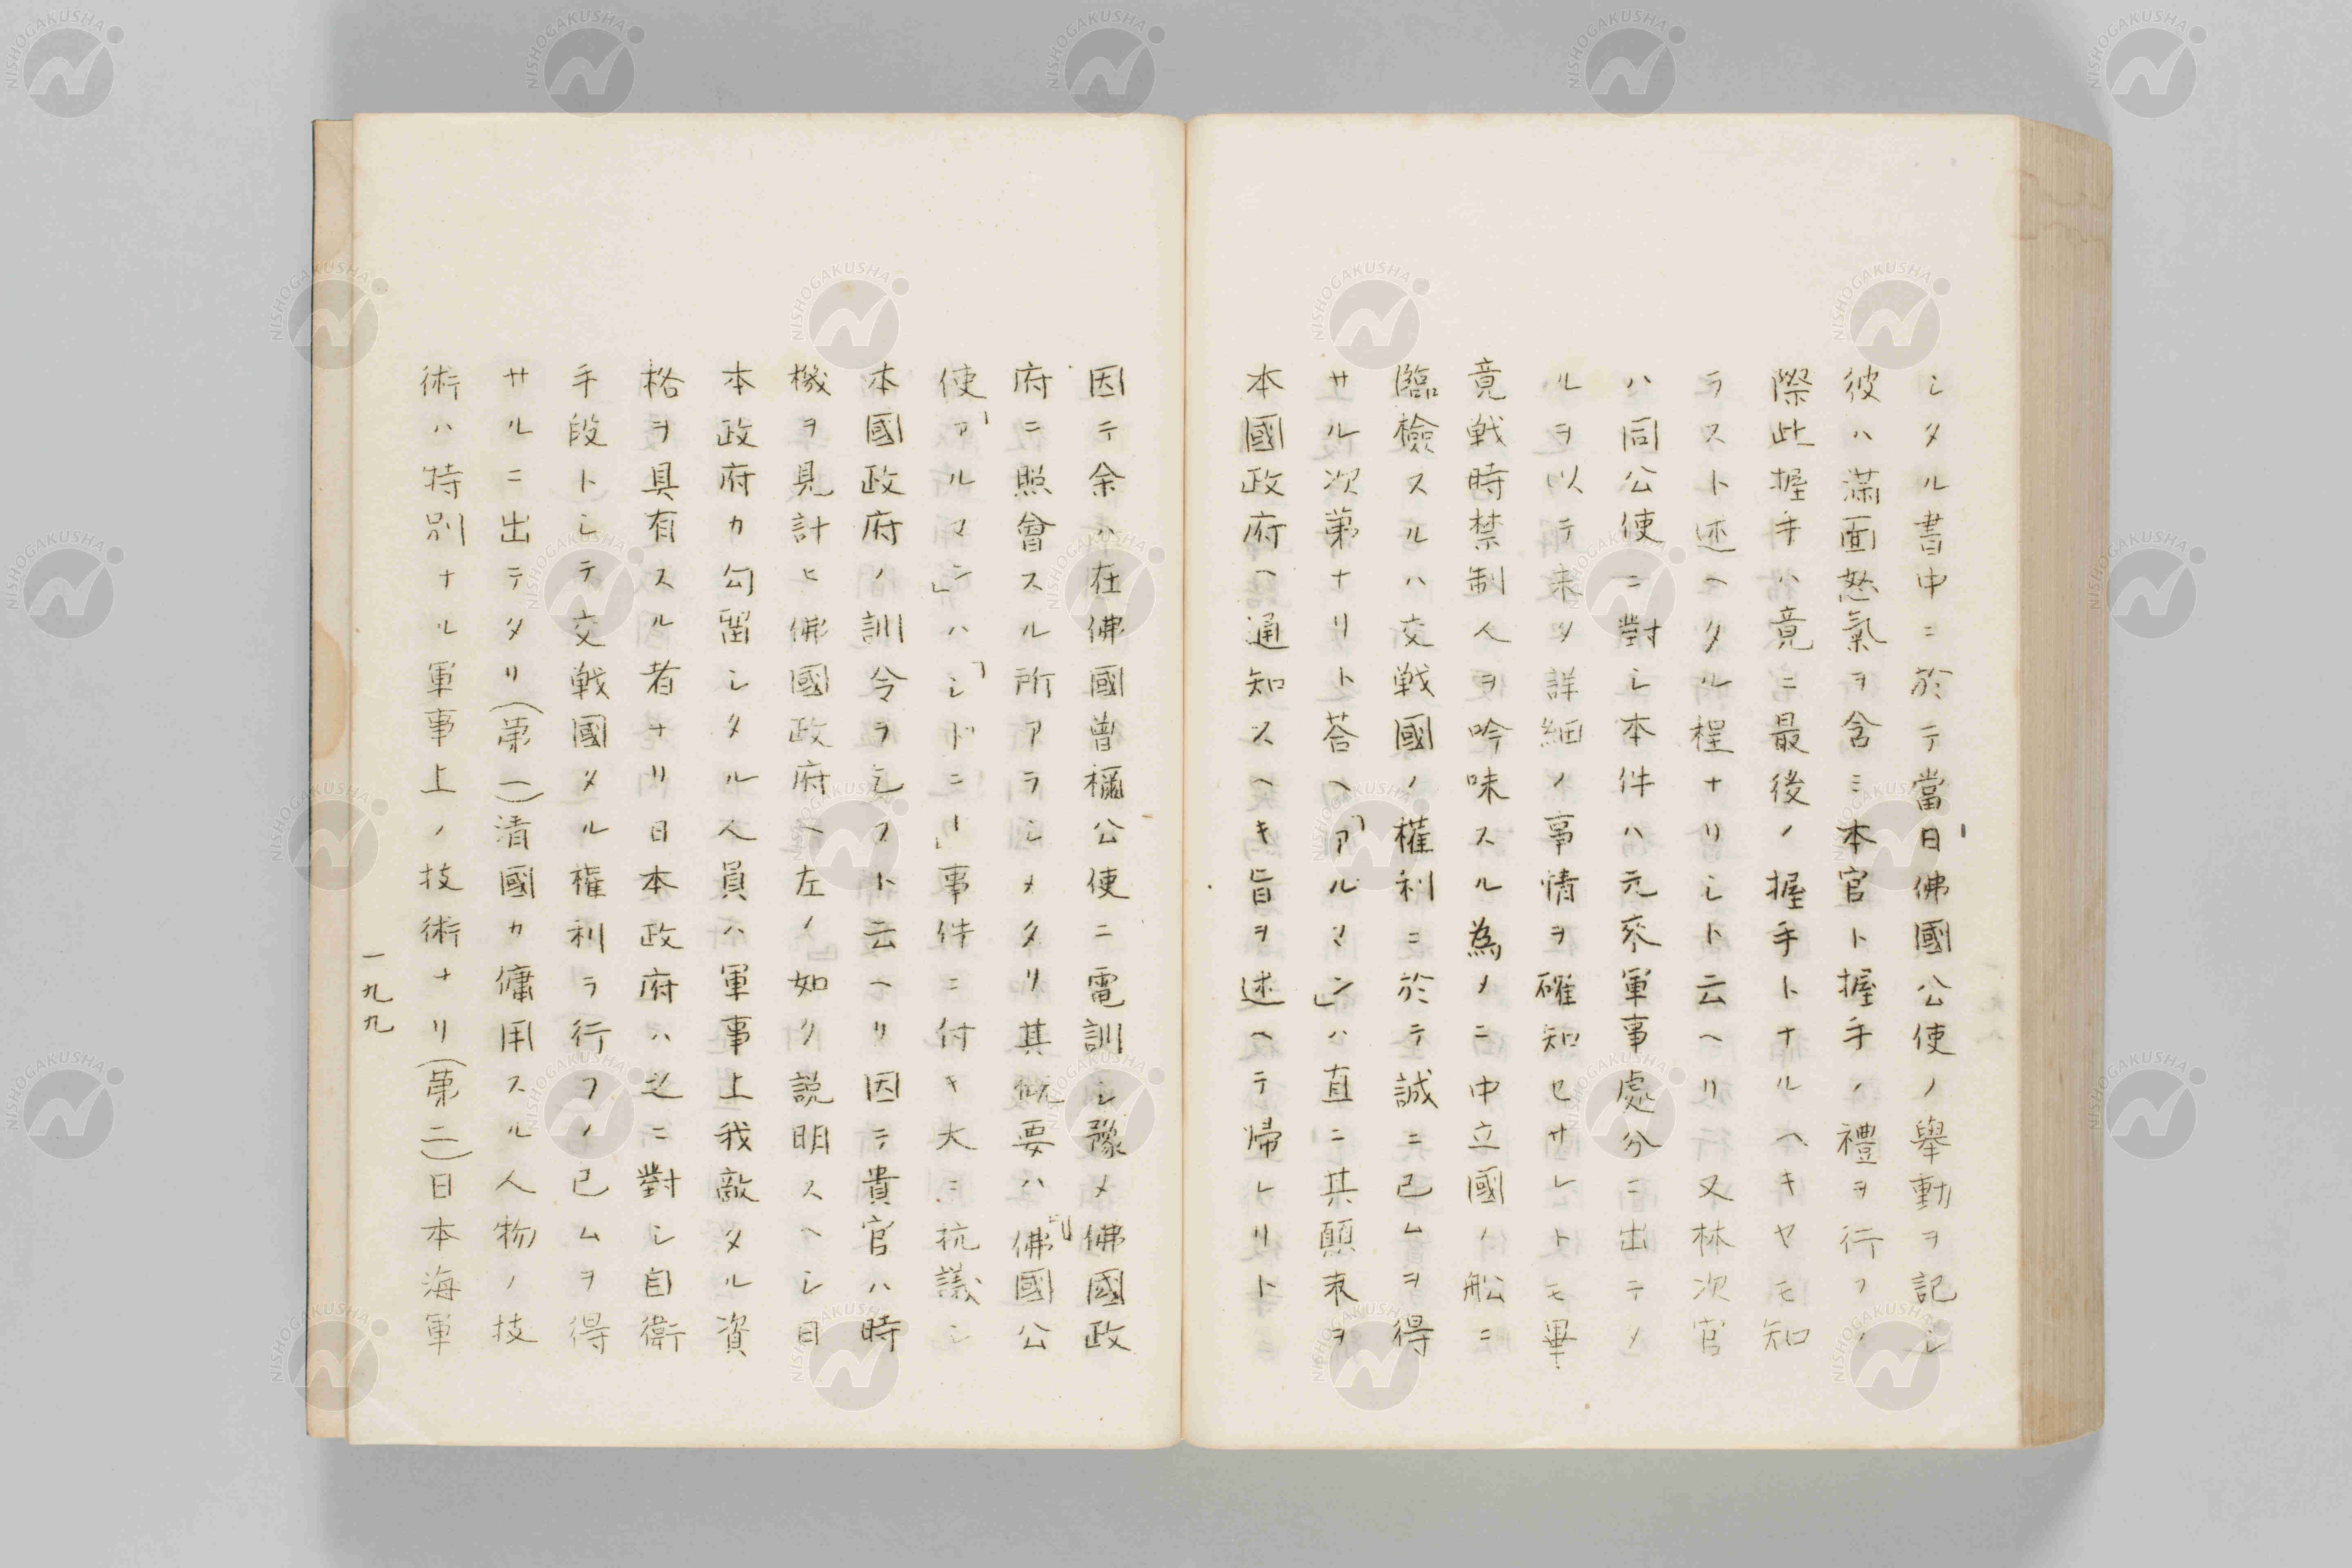 シタル書中ニ於テ當日佛國公使ノ舉動ヲ記シ
彼ハ滿面怒氣ヲ含ミ本官ト握手ノ禮ヲ行フノ
際此握手ハ竟ニ最後ノ握手トナルヘキヤモ知
ラスト述ヘタル程ナリシト云ヘリ又林次官
ハ同公使ニ對シ本件ハ元來軍事處分ニ出テタ
ルヲ以テ未タ詳細ノ事情ヲ確知セサレトモ畢
竟戦時禁制人ヲ吟味スル為メニ中立國ノ船ニ
臨檢スルハ交戦國ノ權利ニ於テ誠ニ已ムヲ得
サル次第ナリト荅ヘ「アルマン」ハ直ニ其顛末ヲ
本國政府ヘ通知スヘキ旨ヲ述ヘテ帰レリト
因テ余ハ在佛國曾禰公使ニ電訓シ豫メ佛國政
府ニ照會スル所アラシメタリ其概要ハ「佛國公
使「アルマン」ハ「シドニー」事件ニ付キ大ニ抗議シ
本國政府ノ訓令ヲ乞フト云ヘリ因テ貴官ハ時
機ヲ見計ヒ佛國政府ヘ左ノ如ク説明スヘシ日
本政府カ勾留シタル人員ハ軍事上我敵タル資
格ヲ具有スル者ナリ日本政府ハ之ニ對シ自衛
手段トシテ交戦國タル權利ヲ行フノ已ムヲ得
サルニ出テタリ(第一)清國カ傭用スル人物ノ技
術ハ特別ナル軍事上ノ技術ナリ(第二)日本海軍
一九九
NISHOGAKUSHA